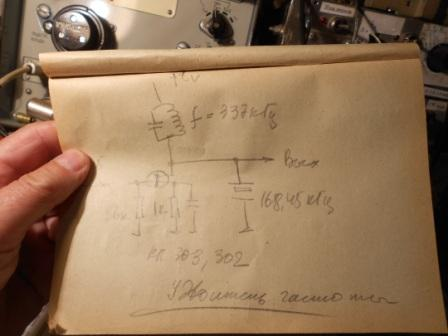 f = 337 кГц
Вых
168,45 кГц
1к
КП 303, 302
Множитель частоты